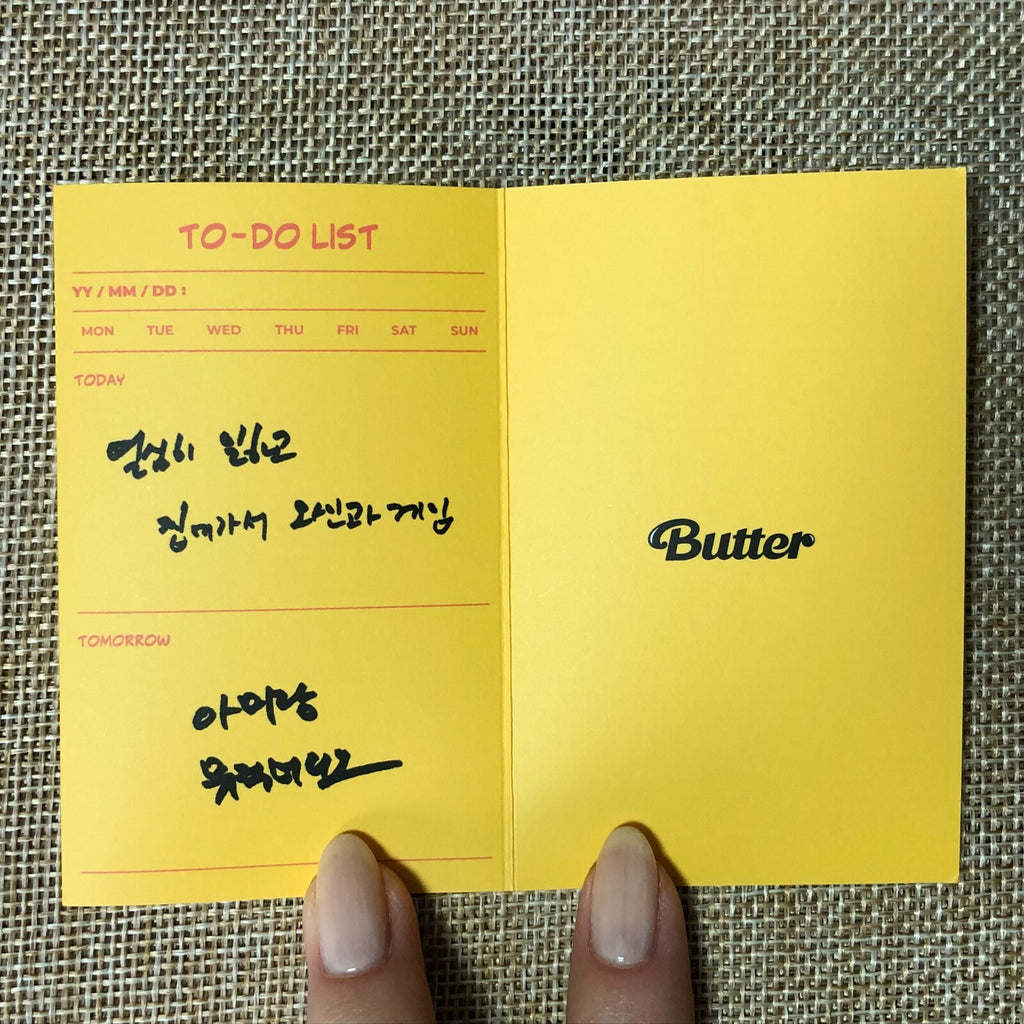 TO-DO LIST
YY / MM / DD :
MON TUE WED THU FRI SAT SUN
TODAY
열심히 일하고
집에가서 와인과 게임
TOMORROW
아미랑
Butter